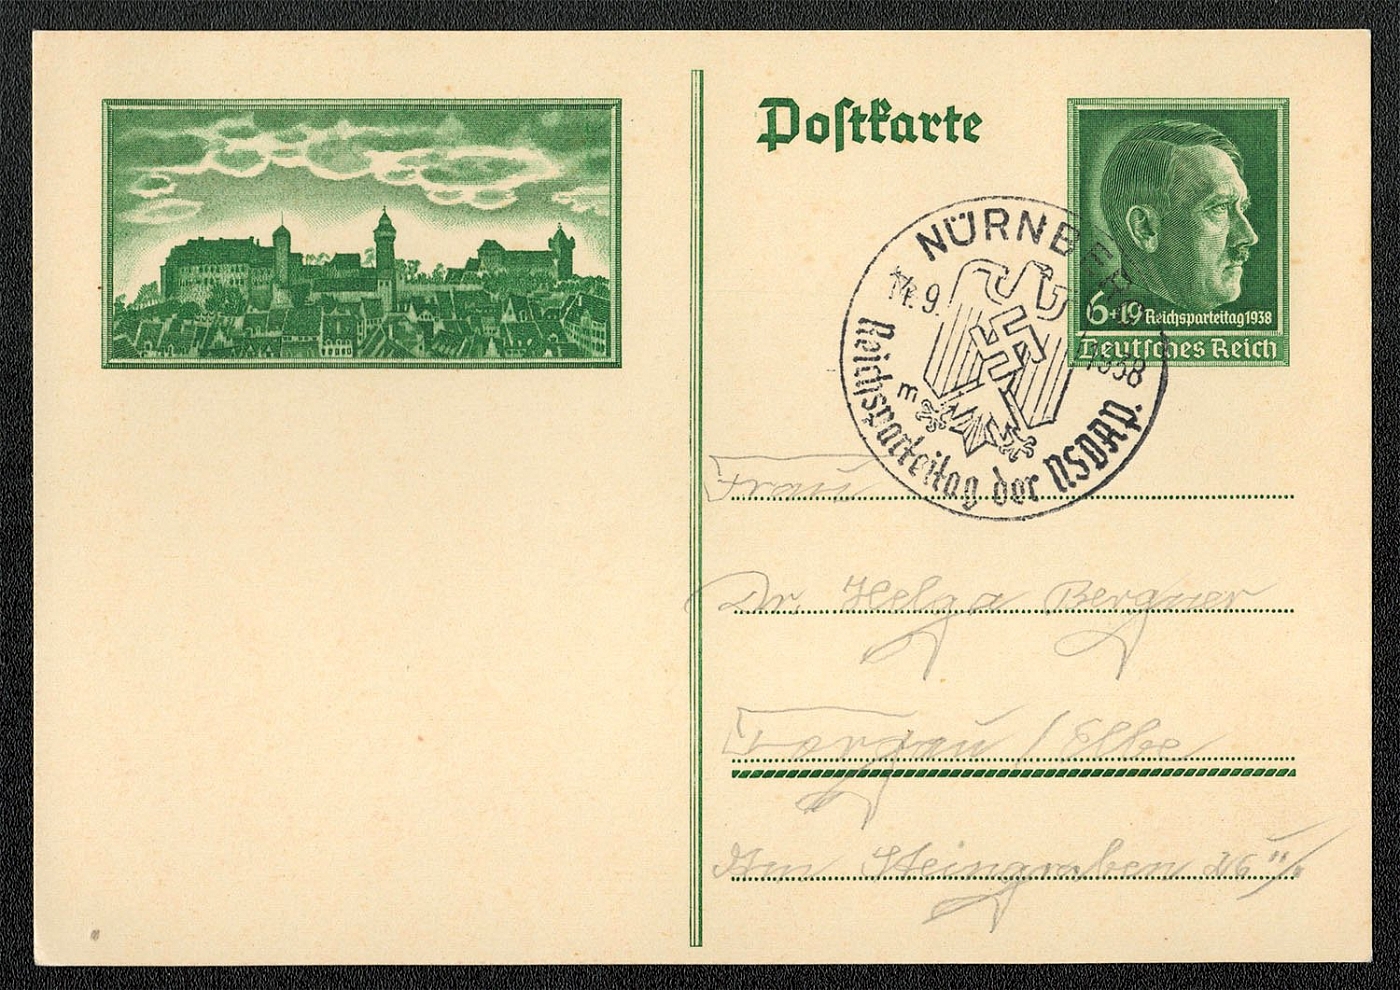 Postkarte
6+19 Reichsparteitag 1938
Deutsches Reich
NÜRNBERG
14.9. 1938
m
Reichsparteitag der NSDAP.
Frau
Dr. Helga Bergner
Torgau / Elbe
Am Steingraben 26 II